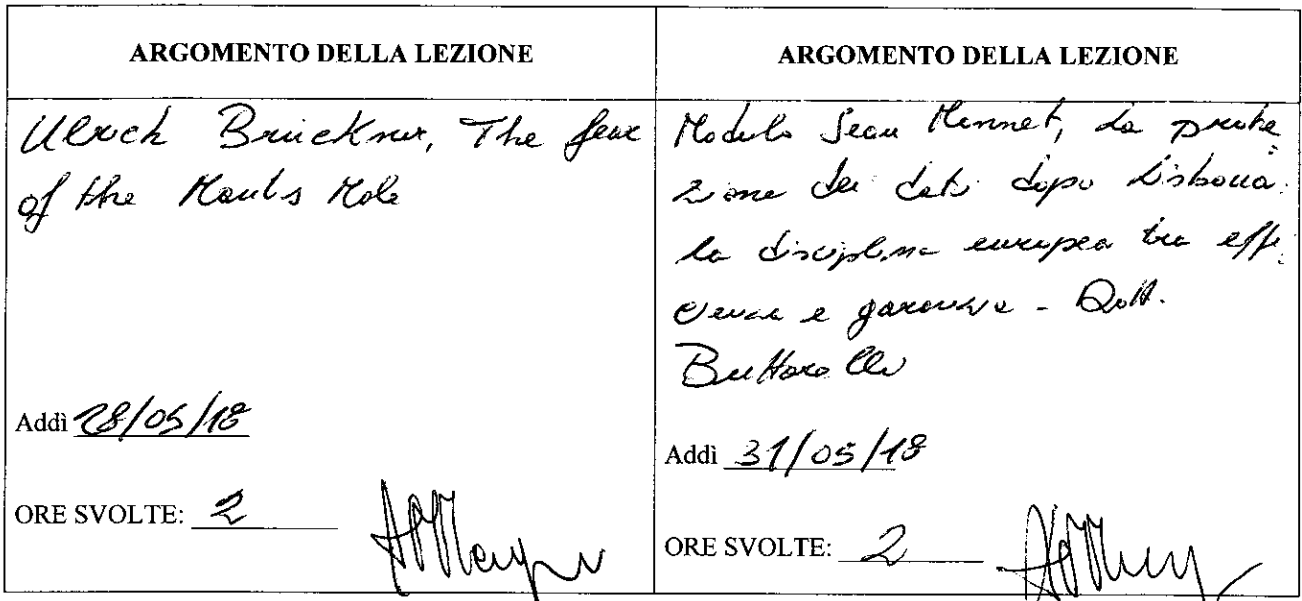 ARGOMENTO DELLA LEZIONE
Ulrich Bruckner, The fear
of the Mole
Addì 28/05/18
ORE SVOLTE: 2
ARGOMENTO DELLA LEZIONE
Modulo Jean Monnet, La prote=
zione dei dati dopo Lisbona:
la disciplina europea tra effi-
cienza e garanzie - Dott.
Buttarelli
Addì 31/05/18
ORE SVOLTE: 2